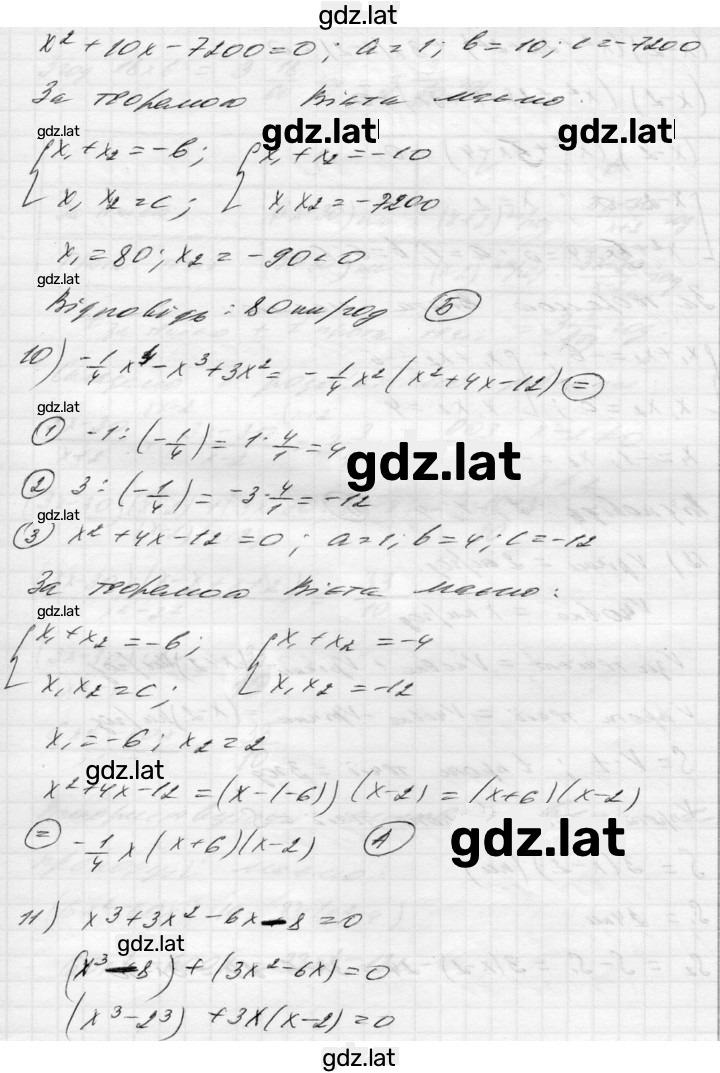 gdz.lat
x² + 10x - 7200 = 0; a = 1; b = 10; c = -7200
За теоремою Вієта маємо:
gdz.lat
gdz.lat gdz.lat
{ x₁ + x₂ = -b; { x₁ + x₂ = -10
x₁ x₂ = c; x₁ x₂ = -7200
x₁ = 80; x₂ = -90 < 0
gdz.lat
Відповідь: 80 км/год Б
10) -1/4 x⁴ - x³ + 3x² = -1/4 x² (x² + 4x - 12) =
gdz.lat
1 -1 : (-1/4) = 1 · 4/1 = 4
gdz.lat
2 3 : (-1/4) = -3 · 4/1 = -12
gdz.lat
3) x² + 4x - 12 = 0; a = 1; b = 4; c = -12
За теоремою Вієта маємо:
gdz.lat
{ x₁ + x₂ = -b; { x₁ + x₂ = -4
x₁ x₂ = c; x₁ x₂ = -12
x₁ = -6; x₂ = 2
gdz.lat
x² + 4x - 12 = (x - (-6)) (x - 2) = (x + 6)(x - 2)
= -1/4 x (x + 6)(x - 2) А
gdz.lat
11) x³ + 3x² - 6x - 8 = 0
gdz.lat
(x³ - 8) + (3x² - 6x) = 0
(x³ - 2³) + 3x(x - 2) = 0
gdz.lat